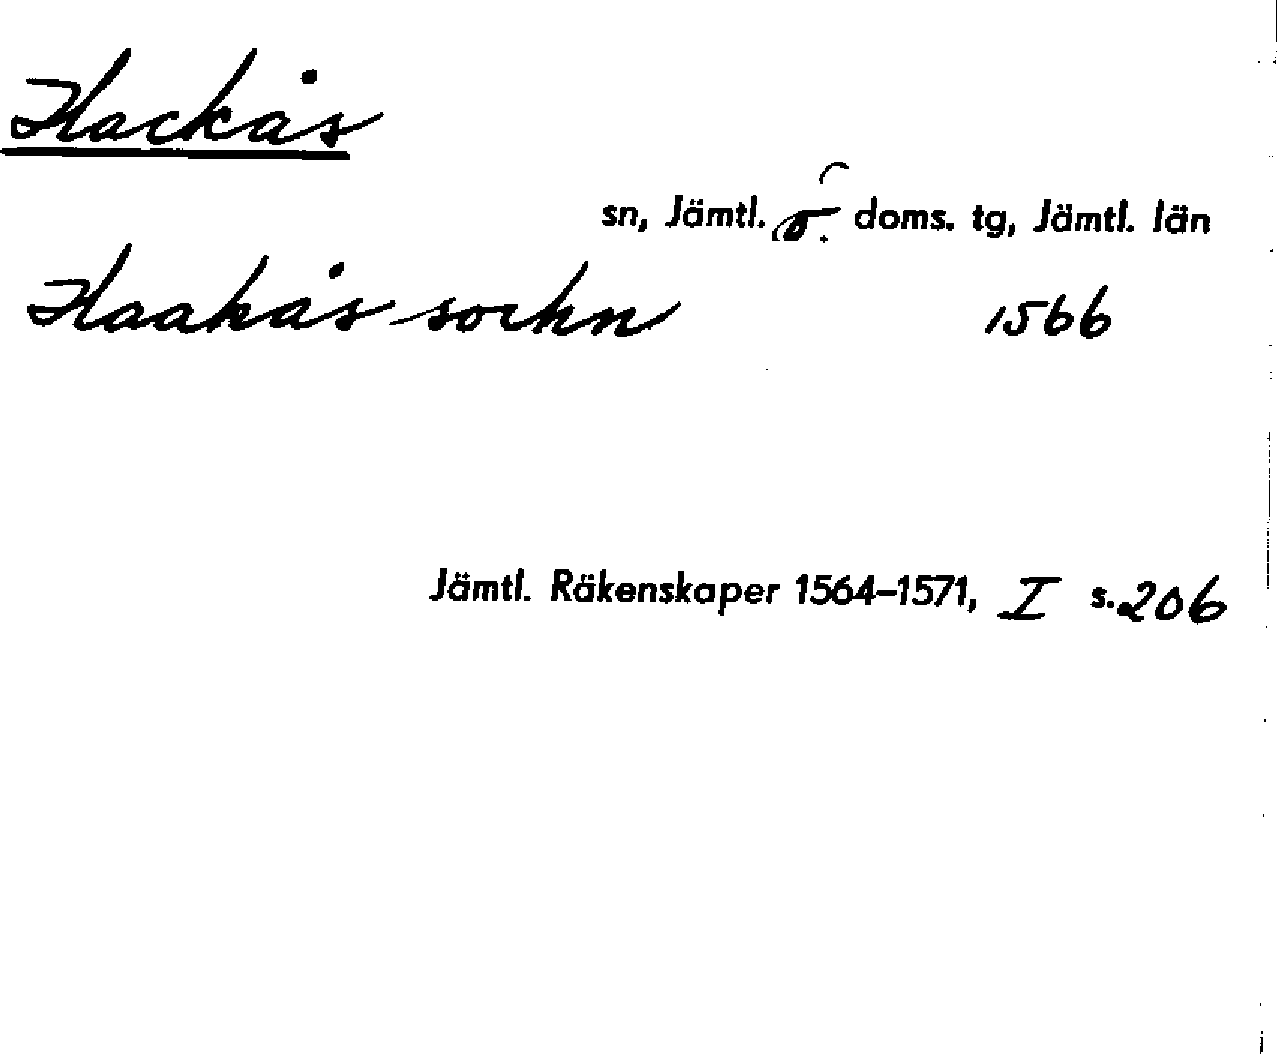 Hackås
sn, Jämtl. doms. tg, Jämtl. län
Haakås sockn 1566
Jämtl. Räkenskaper 1564–1571, I s. 206